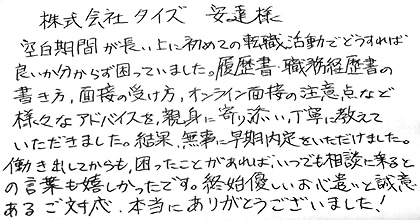 株式会社タイズ 安達様
空白期間が長い上に初めての転職活動でどうすれば
良いか分からず困っていました。履歴書・職務経歴書の
書き方、面接の受け方、オンライン面接の注意点など
様々なアドバイスを、親身に寄り添い、丁寧に教えて
いただきました。結果、無事に早期内定をいただけました。
働き出してからも、困ったことがあれば、いつでも相談に乗ると
の言葉も嬉しかったです。終始優しいお心遣いと誠意
あるご対応、本当にありがとうございました!